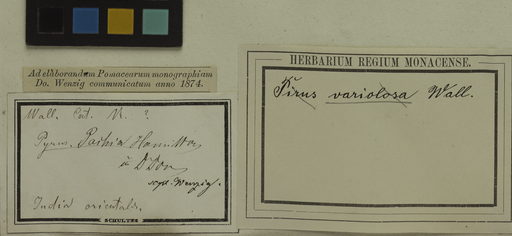 Ad elaborandum Pomacearum monographiam
Do. Wenzig communicatum anno 1874.
Wall. Cat. Nr. ?
Pyrus Pashia Hamilton
D. Don
scrps. Wenzig.
India orientalis.
HERBARIUM REGIUM MONACENSE.
Pirus variolosa Wall.